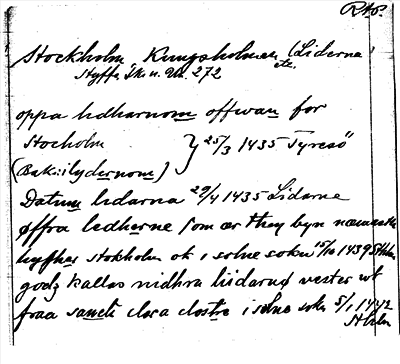 Rtb.
Stockholm Kungsholmen (Liderne)
Styffe Sk. u. Un. 272 etc.
oppa lidharnom offwan for
Stocholm } 25/3 1435 Tyresö
(Baksi: lydernom)
Datum lidarna 29/4 1435 Lidarne
øffra ledherne som ær they byn næmasta
ligghes stokholm ok i solne sokn 15/10 1439 Sthlm
godz kallas nidhra liidarnø vester ut
fraa sancti clara clostre i solne sokn 5/1 1442
Sthlm